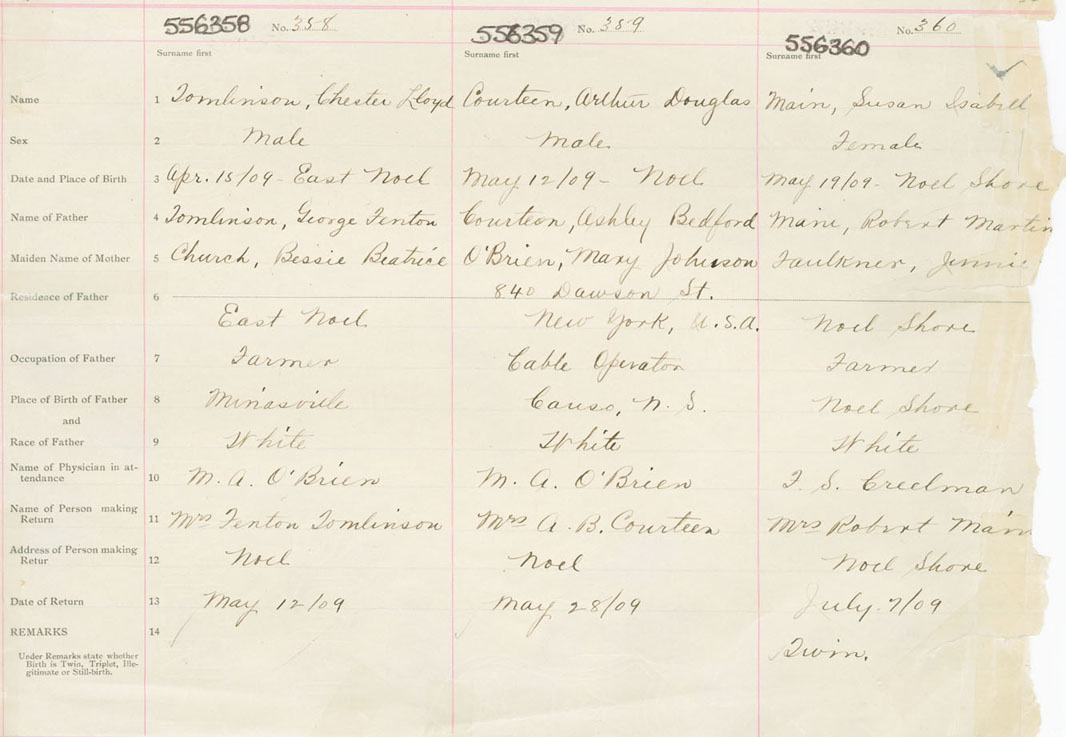 556358 No. 358 556359 No. 359 556360 No. 360
Surname first Surname first Surname first
Name 1 Tomlinson, Chester Lloyd Courteen, Arthur Douglas Main, Susan Isabell
Sex 2 Male Male Female
Date and Place of Birth 3 Apr. 15/09 - East Noel May 12/09 - Noel May 19/09 - Noel Shore
Name of Father 4 Tomlinson, George Fenton Courteen, Ashley Bedford Main, Robert Martin
Maiden Name of Mother 5 Church, Bessie Beatrice O'Brien, Mary Johnson Faulkner, Jennie
Residence of Father 6 840 Dawson St.
East Noel New York, U.S.A. Noel Shore
Occupation of Father 7 Farmer Cable Operator Farmer
Place of Birth of Father 8 Minasville Canso, N. S. Noel Shore
and
Race of Father 9 White White White
Name of Physician in at-
tendance 10 M. A. O'Brien M. A. O'Brien F. S. Creelman
Name of Person making
Return 11 Mrs Fenton Tomlinson Mrs A. B. Courteen Mrs Robert Main
Address of Person making
Retur 12 Noel Noel Noel Shore
Date of Return 13 May 12/09 May 28/09 July 7/09
REMARKS 14
Twin.
Under Remarks state whether
Birth is Twin, Triplet, Ille-
gitimate or Still-birth.